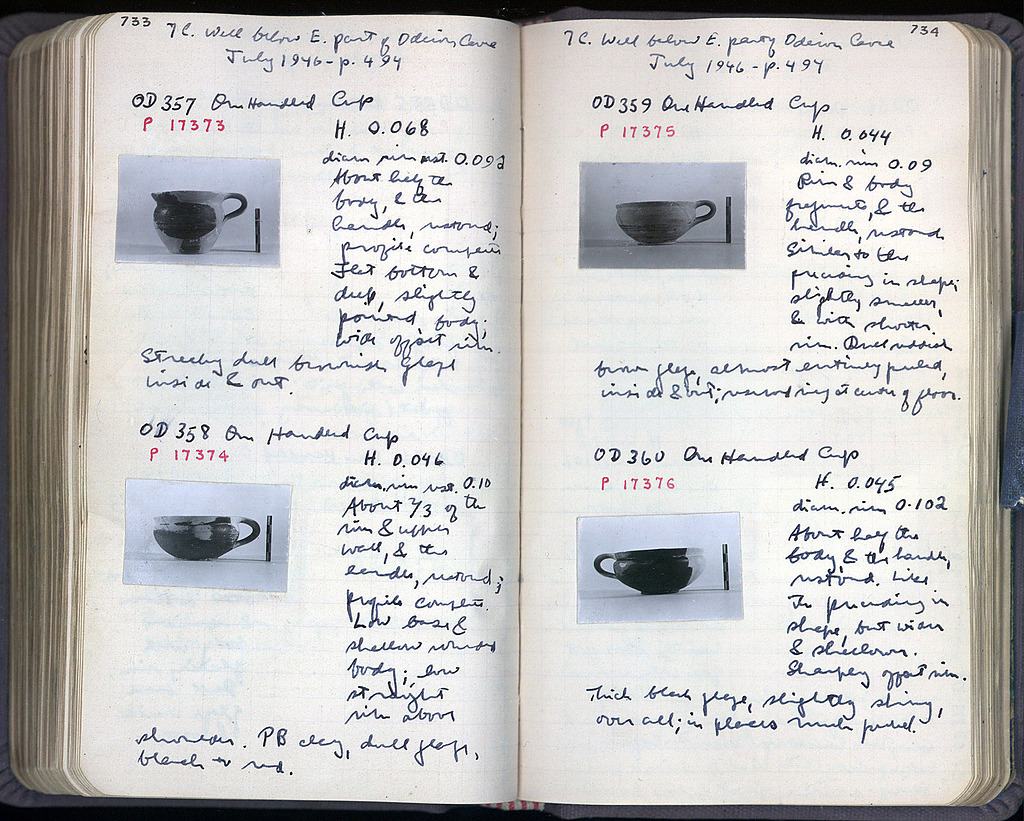 733
7 C. Well below E. part of Odeion Cavea
July 1946 - p. 494
OD 357 One Handled Cup
P 17373
H. 0.068
diam. rim rest. 0.092
About half the
body, & the
handle, restored;
profile complete
Flat bottom &
deep, slightly
pointed, body;
wide offset rim.
Streaky dull brownish glaze
inside & out.
OD 358 One Handled Cup
P 17374
H. 0.046
diam. rim rest. 0.10
About 2/3 of the
rim & upper
wall, & the
handle, restored;
profile complete.
Low base &
shallow rounded
body; low
straight
rim above
shoulder. PB clay, dull glaze,
black to red.
734
7 C. Well below E. part of Odeion Cavea
July 1946 - p. 494
OD 359 One Handled Cup
P 17375
H. 0.044
diam. rim 0.09
Rim & body
fragments, & the
handle, restored
Similar to the
preceding in shape;
slightly smaller,
& with shorter
rim. Dull reddish
brown glaze, almost entirely peeled,
inside & out; reserved ring at center of floor.
OD 360 One Handled Cup
P 17376
H. 0.045
diam. rim 0.102
About half the
body & the handle,
restored. Like
the preceding in
shape, but wider
& shallower.
Sharply offset rim.
Thick black glaze, slightly shiny,
over all; in places much peeled.